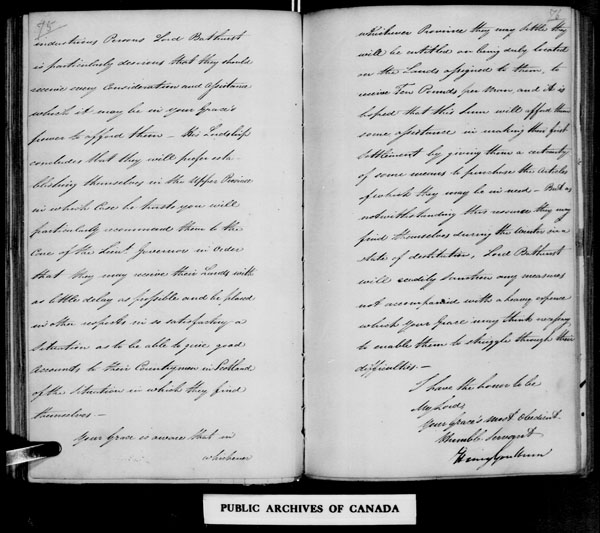 95
industrious Persons Lord Bathurst
is particularly desirous that they should
receive every Consideration and Assistance
which it may be in your Grace's
power to afford them – His Lordship
concludes that they will prefer esta-
blishing themselves in the Upper Province
in which Case he trusts you will
particularly recommend them to the
Care of the Lieut. Governor in Order
that they may receive their Lands with
as little delay as possible and be placed
in other respects in so satisfactory a
Situation as to be able to give good
Accounts to their Countrymen in Scotland
of the Situation in which they find
themselves –
Your Grace is aware that in
whichever
whichever Province they may settle they
will be entitled on being duly located
on the Lands assigned to them, to
receive Ten Pounds per Man, and it is
hoped that this Sum will afford them
some assistance in making their first
Settlement by giving them a certainty
of some means to purchase the Articles
of which they may be in need – But as
notwithstanding this resource they may
find themselves during the Winter in a
state of destitution, Lord Bathurst
will readily sanction any measures
not accompanied with a heavy expence
which Your Grace may think necessary
to enable them to struggle through their
difficulties –
I have the honor to be
My Lord
Your Grace's most Obedient
Humble Servant
Henry Goulburn
PUBLIC ARCHIVES OF CANADA